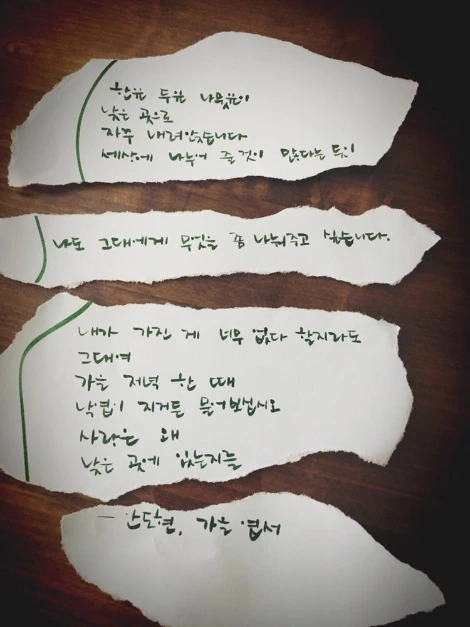 한잎 두잎 나뭇잎이
낮은 곳으로
자꾸 내려앉습니다
세상에 나누어 줄 것이 많다는 듯이
나도 그대에게 무엇을 좀 나눠주고 싶습니다.
내가 가진 게 너무 없다 할지라도
그대여
가을 저녁 한 때
낙엽이 지거든 물어보십시오
사랑은 왜
낮은 곳에 있는지를
— 안도현, 가을 엽서